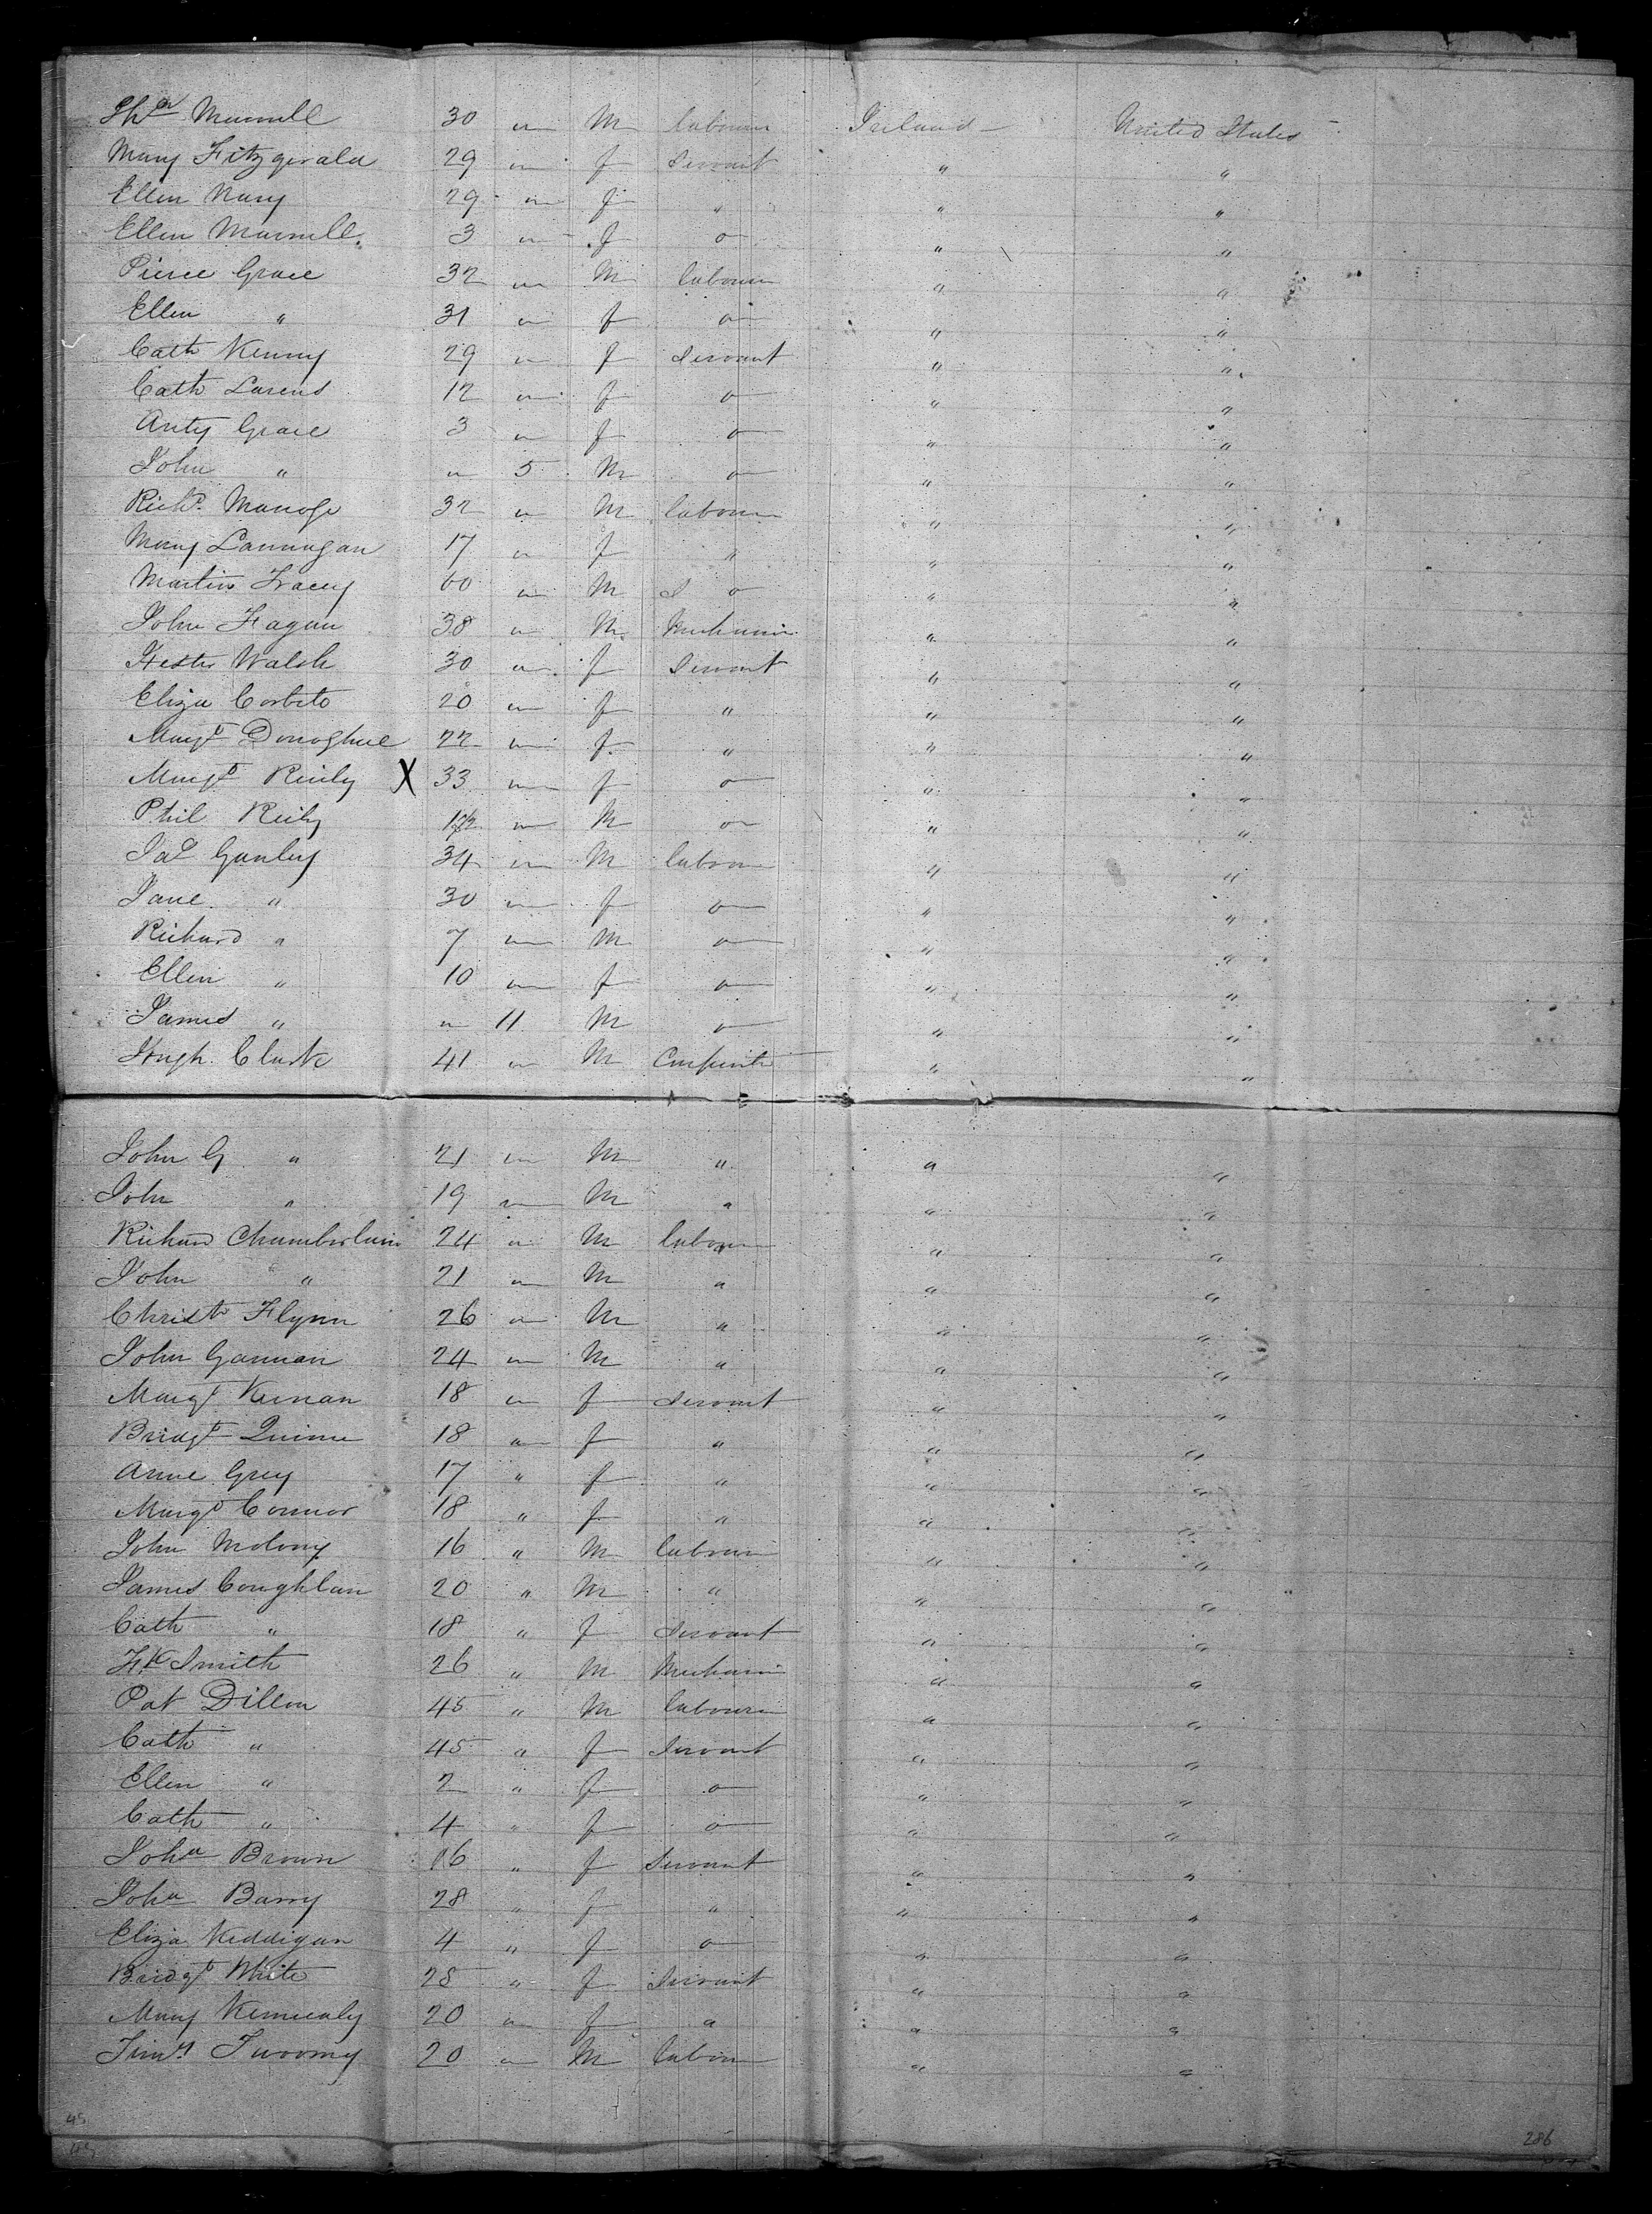 Thos Murrell 30 " M labourer Ireland United States
Mary Fitzgerald 29 " f Servant " "
Ellen Nary 29 " f " " "
Ellen Murrell 3 " f o " "
Pierce Grace 32 " M labourer " "
Ellen " 31 " f o " "
Cath Kenny 29 " f Servant " "
Cath Larens 12 " f o " "
Anty Grace 3 " f o " "
John " " 5 M o " "
Richd. Manoge 32 " M labourer " "
Mary Lannugan 17 " f " " "
Martin Tracey 60 " M o " "
John Fagan 38 " M Mechanic " "
Hester Walsh 30 " f Servant " "
Eliza Corbito 20 " f " " "
Margt Donoghue 22 " f " " "
Margt Reiily X 33 " f o " "
Phil Reily " M o " "
Jas Ganley 34 " M labour " "
Jane " 30 " f o " "
Richard " 7 " M o " "
Ellen " 10 " f o " "
James " " 11 M o " "
Hugh Clark 41 " M Carpenter " "
John G " 21 " M " " "
John " 19 " M " " "
Richard Chamberlain 24 " M labour " "
John " 21 " M " " "
Christr Flynn 26 " M " " "
John Gannan 24 " M " " "
Margt Kernan 18 " f Servant " "
Bridgt Quinn 18 " f " " "
Anne Grey 17 " f " " "
Margt Connor 18 " f " " "
John Molony 16 " M labour " "
James Coughlan 20 " M " " "
Cath " 18 " f Servant " "
Fk Smith 26 " M Mechanic " "
Pat Dillon 45 " M labourer " "
Cath " 45 " f Servant " "
Ellen " 2 " f o " "
Cath " 4 " f o " "
Joha Brown 16 " f Servant " "
Joha Barry 28 " f " " "
Eliza Keddigan 4 " f o " "
Bridgt White 25 " f Servant " "
Mary Kennealy 20 " f " " "
Timy Twoomy 20 " M labour " "
45
286